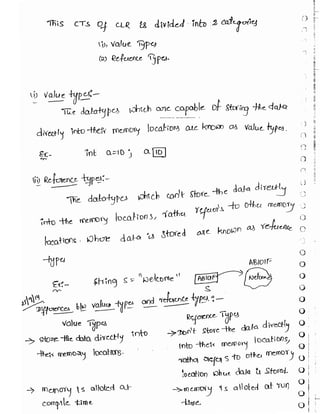 This CTS Of CLR is divided into 2 categories
(1), value Types
(2) Reference Types.
(i) value types:-
The datatypes which are capable Of storing the data
directly into their memory locations are known as value types.
Ex:- int a=10; a 10
(ii) Reference types:-
The datatypes which can't store the data directly
into the memory locations, rather refers to other memory
locations. Where data is stored are known as reference
-type
Ex:- String s = "welcome" AB101F
S
AB101F
Welcome
Differences b/w value type and reference types:-
Value Types
→ store the data directly into
their memory locations.
→ memory is alloted at
compile time
Reference Types
→ Don't store the data directly
into their memory locations,
rather refers to other memory
location where data is stored.
→ memory is alloted at run
time.